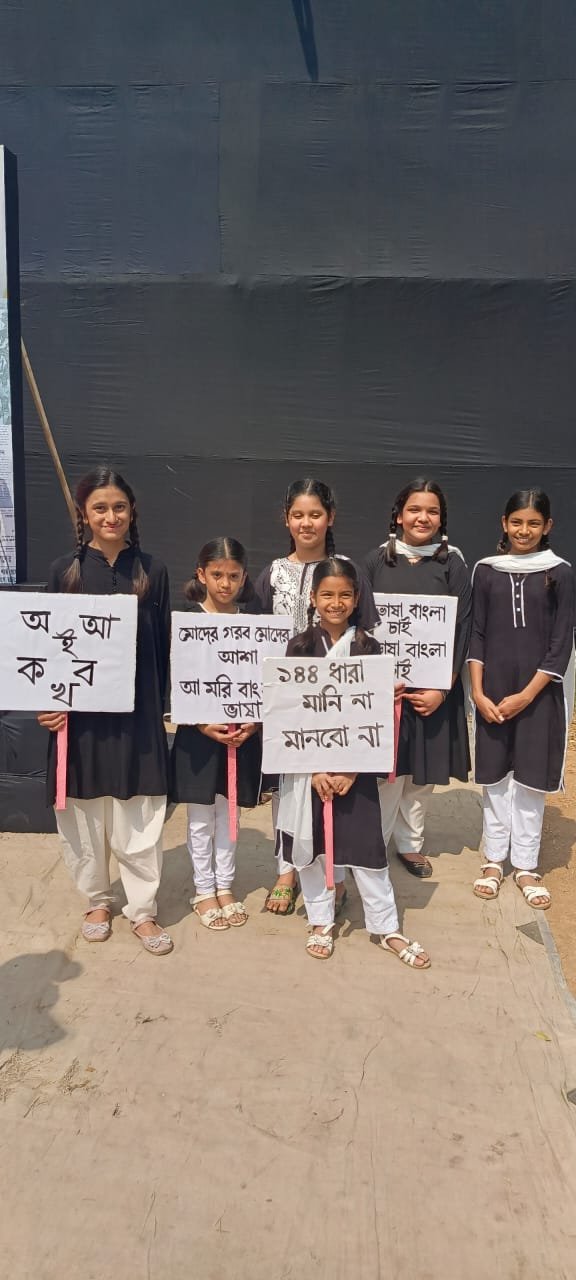 অ আ
ই
ক ব
খ
মোদের গরব মোদের
আশা
আ মরি বাং
ভাষা
১৪৪ ধারা
মানি না
মানবো না
ভাষা বাংলা
চাই
ভাষা বাংলা
চাই